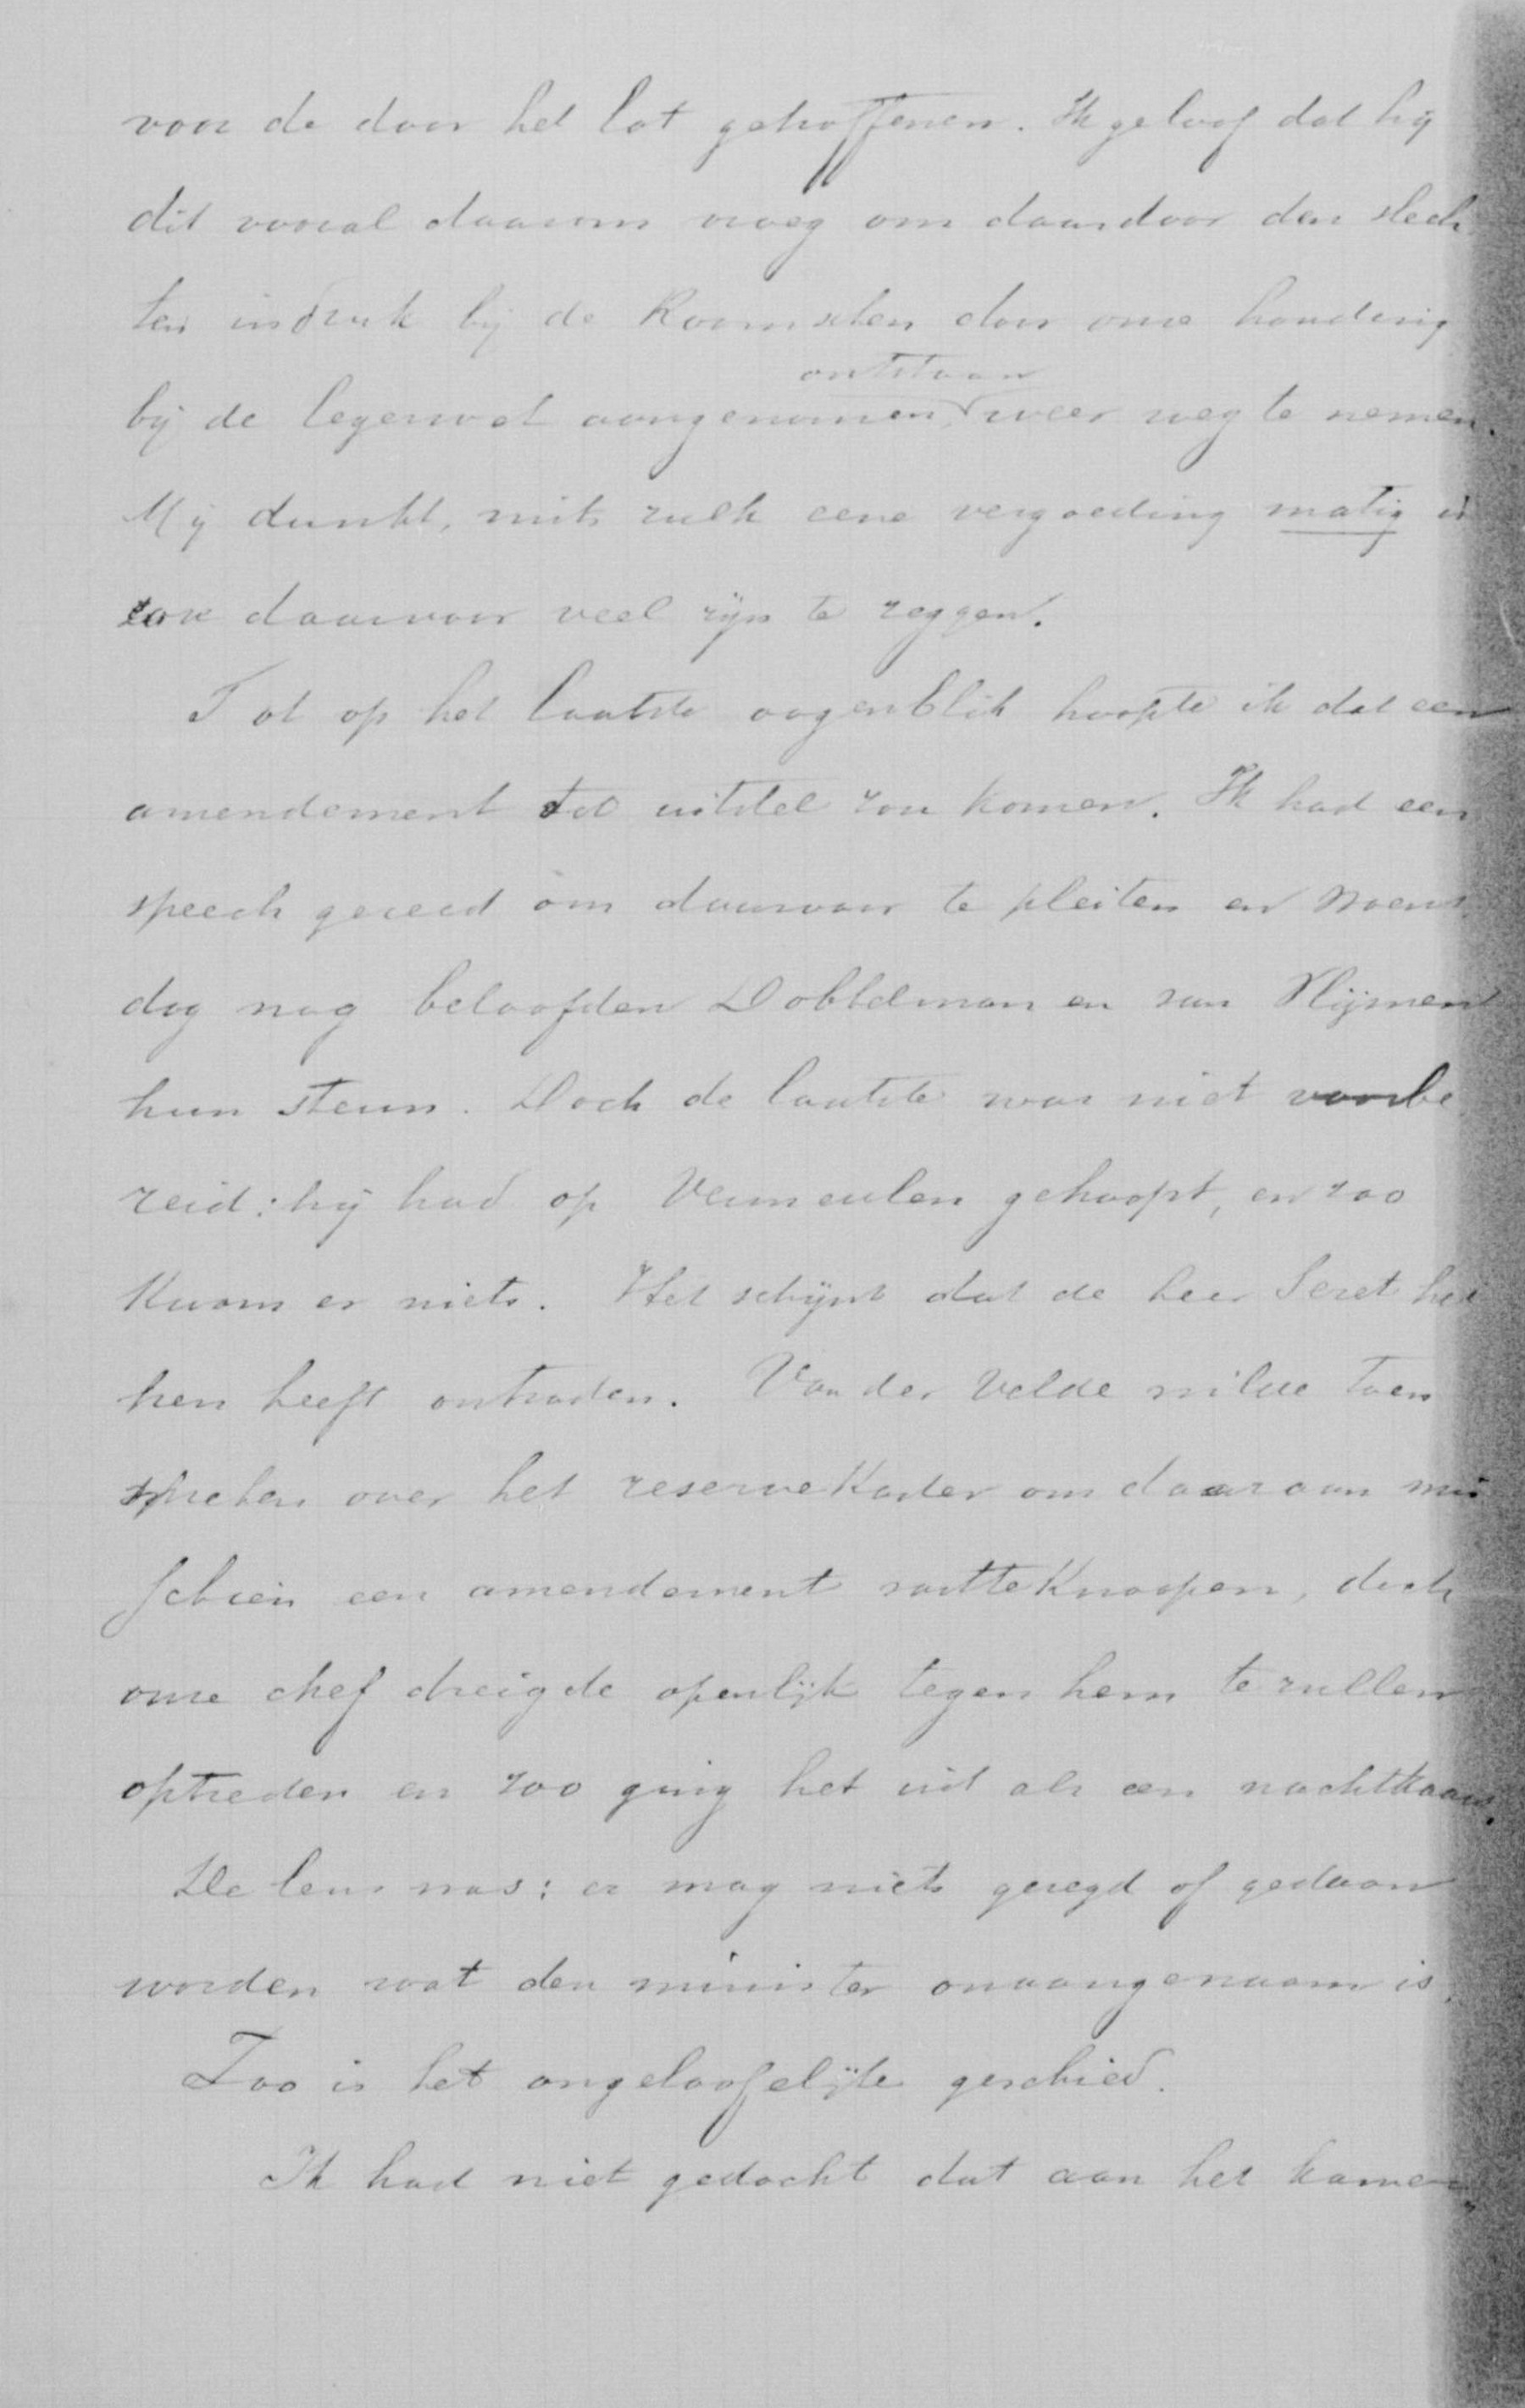 voor de door het lot getroffenen. Ik geloof dat hij
dit vooral daarom vroeg om daardoor den slech
ten indruk bij de Roomschen door onze houding
ontstaan
bij de legerwet aangenomen, weer weg te nemen.
Mij dunkt, mits zulk eene vergoeding matig is
zou daarvoor veel zijn te zeggen.
Tot op het laatste oogenblik hoopte ik dat een
amendement tot uitstel zou komen. Ik had een
speech gereed om daarvoor te pleiten en Woens
dag nog beloofden Dobbelman en van Nijmen
hun steun. Doch de laatste was niet voorbe
reid: hij had op Vermeulen gehoopt, en zoo
kwam er niets. Het schijnt dat de heer Seret het
hen heeft ontraden. Van der Velde wilde toen
spreken over het reservekader om daaraan mis
schien een amendement vastteknoopen, doch
onze chef dreigde openlijk tegen hem te zullen
optreden en zoo ging het uit als een nachtkaars.
De leus was: er mag niets gezegd of gedaan
worden wat den minister onaangenaam is.
Zoo is het ongeloofelijke geschied.
Ik had niet gedacht dat aan het kamer